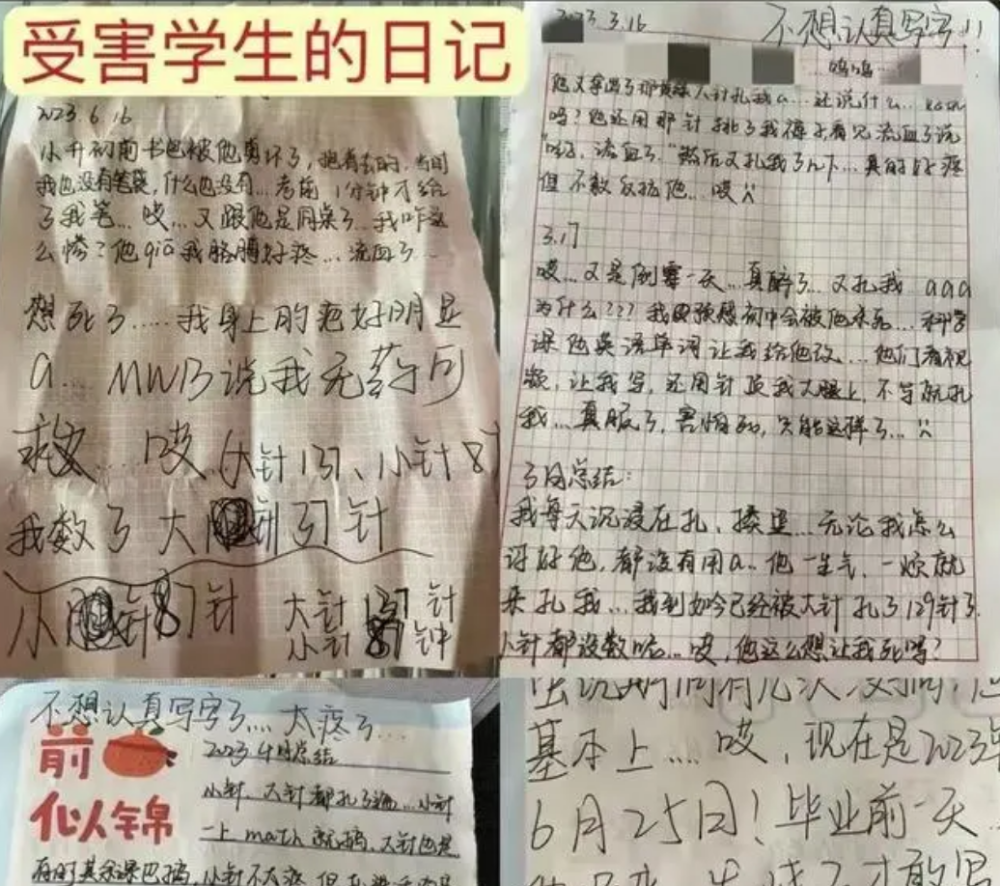 受害学生的日记
2023 6 16
小升初前书包被他剪坏了,抱着去的,当时
我也没有笔袋,什么也没有...考前1分钟才给
了我笔...哎...又跟他是同桌了...我咋这
么惨?他qiā我胳膊好疼...流血了...
想死了.....我身上的疤好明显
a... MWB说我无药可
救....哎.(大针137、小针87
我数了 大 针 37针
小 针87针 大针137针
小针87钟
2023.3.16 不想认真写字!!
...呜呜...
他又拿出了那 大针扎我a...还说什么...
吗?他还用那针挑了我 看见流血了说
"哟,流血了."然后又扎我了几下...真的好疼
但不敢反抗他...哎
3.17
哎...又是倒霉一天...真醉了...又扎我...aaa
为什么???我 预感初中会被他 死...科学
课他英语单词让我给他改...他们看视
频,让我写,还用针顶我大腿上,不写就扎
我...真服了,害怕死,只能这样了...
3月总结:
我每天沉浸在扎、揍里...无论我怎么
讨好他,都没有用a..他一生气、一烦就
来扎我...我到如今已经被大针扎了129针了.
小针都没数呢...哎,他这么想让我死吗?
不想认真写字了....太疼了...
前 似锦
2023 4月总结
小针、大针都扎了遍...小针
一上math就扎,大针也是
有时其余课也扎,小针不太疼
期间有几次
基本上....哎,现在是2023年
6月25日!毕业前一天
才敢写